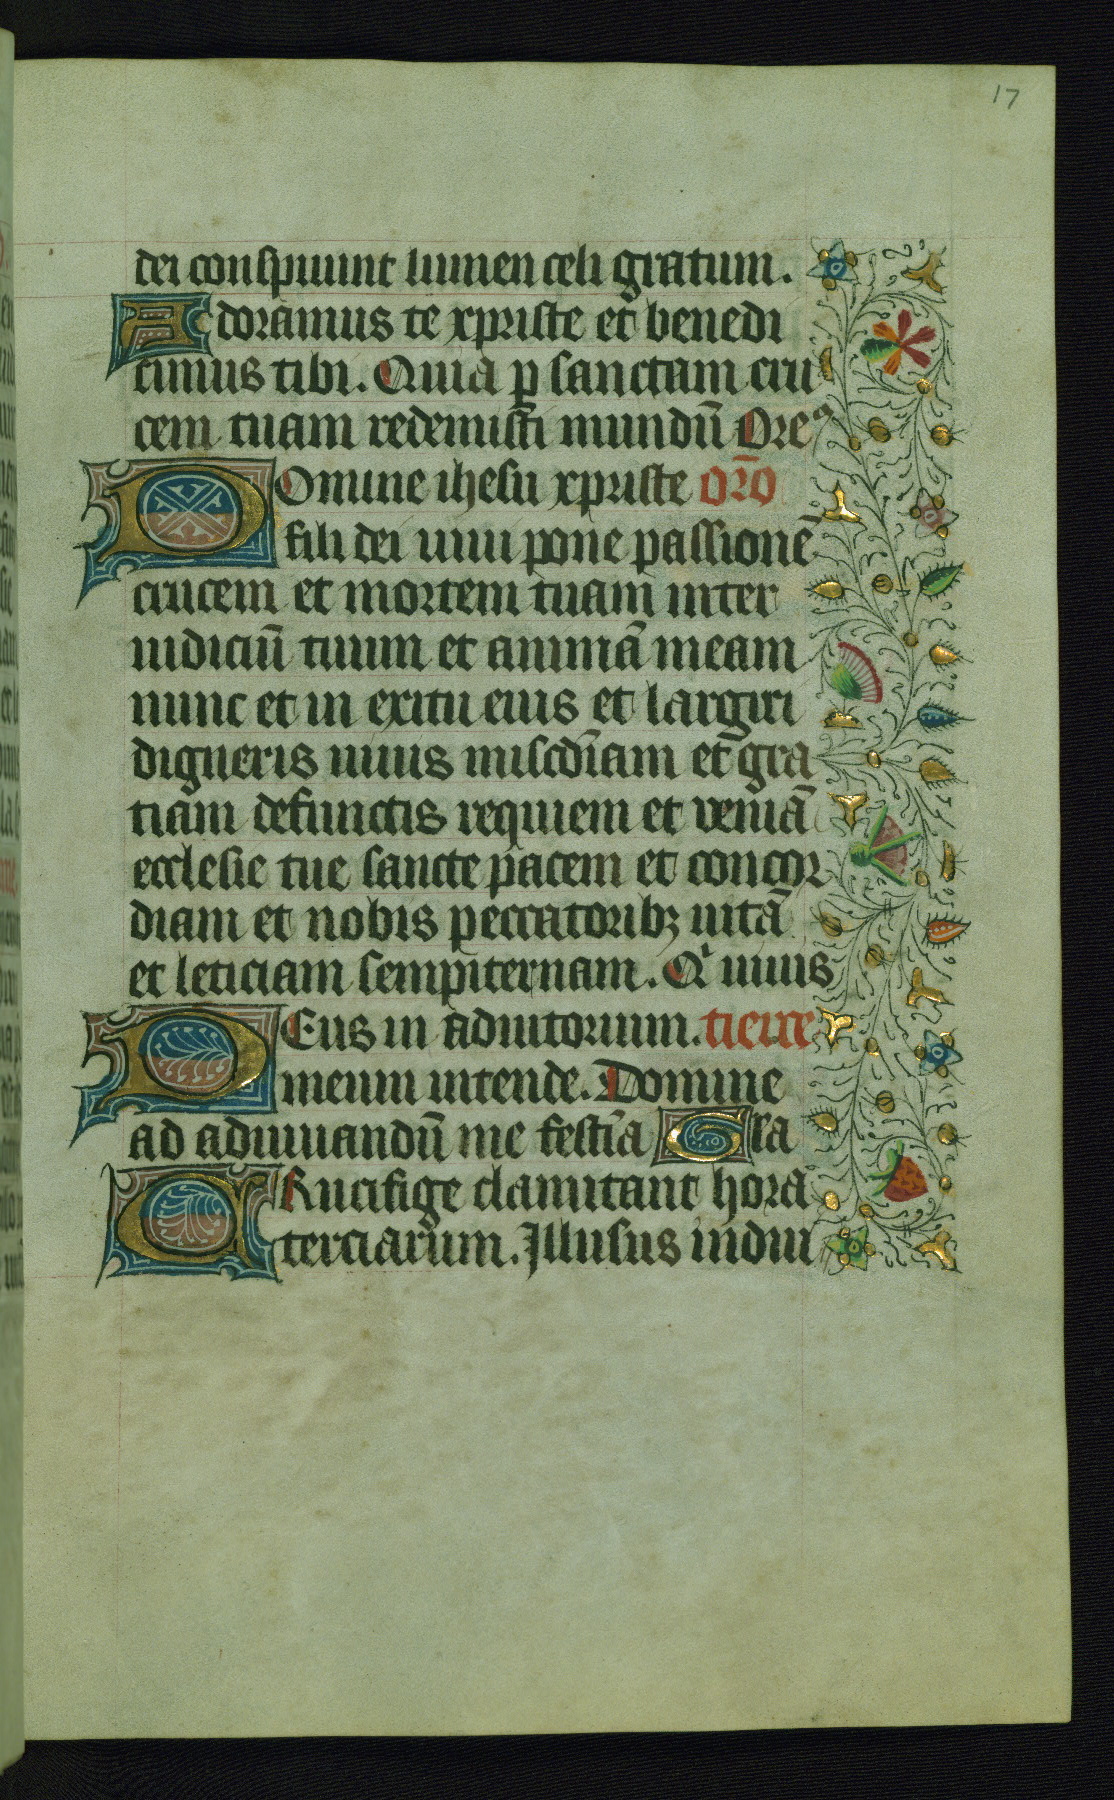 17
dei conspuunt lumen celi gratum.
Adoramus te xpriste et benedi
cimus tibi. Quia ꝑ sanctam cru
cem tuam redemisti mundū Oreꝰ
Domine ihesu xpriste orō
fili dei uiui pone passionē
crucem et mortem tuam inter
iudiciū tuum et animā meam
nunc et in exitu eius et largiri
digneris uiuis miscdīam et gra
tiam defunctis requiem et veniā
ecclesie tue sancte pacem et concor
diam et nobis peccatoribꝫ uitā
et leticiam sempiternam. Qͥ uiuis
Deus in adiutorium. tierce
meum intende. Domine
ad adiuuandū me festīa Gla
Crucifige clamitant hora
terciarum. Illusus indui